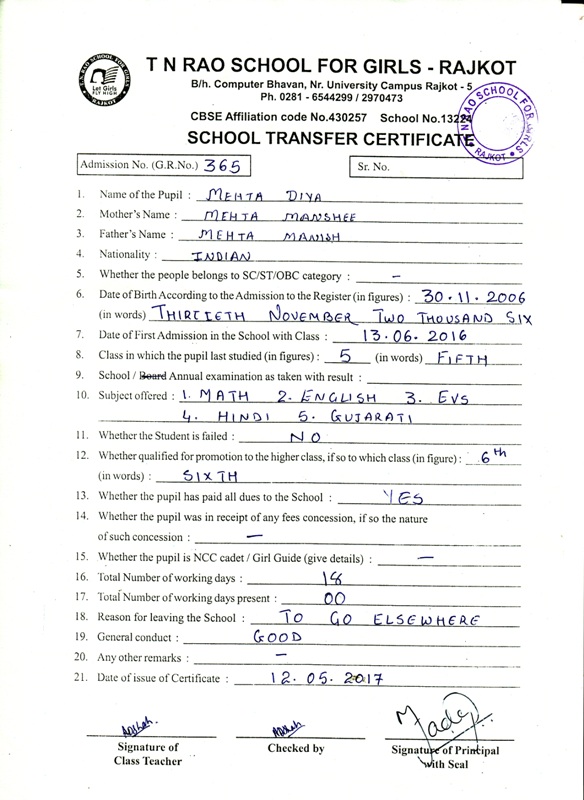 T. N. RAO SCHOOL FOR GIRLS
Let Girls
FLY HIGH
RAJKOT
T N RAO SCHOOL FOR GIRLS - RAJKOT
B/h. Computer Bhavan, Nr. University Campus Rajkot - 5
Ph. 0281 - 6544299 / 2970473
CBSE Affiliation code No.430257 School No.13224
SCHOOL TRANSFER CERTIFICATE
T.N. RAO SCHOOL FOR GIRLS
RAJKOT
Admission No. (G.R.No.) 365 Sr. No.
1. Name of the Pupil : MEHTA DIYA
2. Mother's Name : MEHTA MANSHEE
3. Father's Name : MEHTA MANISH
4. Nationality : INDIAN
5. Whether the people belongs to SC/ST/OBC category : –
6. Date of Birth According to the Admission to the Register (in figures) : 30.11.2006
(in words) THIRTIETH NOVEMBER TWO THOUSAND SIX
7. Date of First Admission in the School with Class : 13.06.2016
8. Class in which the pupil last studied (in figures) : 5 (in words) FIFTH
9. School / Board Annual examination as taken with result :
10. Subject offered : 1. MATH 2. ENGLISH 3. EVS
4. HINDI 5. GUJARATI
11. Whether the Student is failed : NO
12. Whether qualified for promotion to the higher class, if so to which class (in figure) : 6th
(in words) : SIXTH
13. Whether the pupil has paid all dues to the School : YES
14. Whether the pupil was in receipt of any fees concession, if so the nature
of such concession : –
15. Whether the pupil is NCC cadet / Girl Guide (give details) : –
16. Total Number of working days : 18
17. Total Number of working days present : 00
18. Reason for leaving the School : TO GO ELSEWHERE
19. General conduct : GOOD
20. Any other remarks : –
21. Date of issue of Certificate : 12.05.2017
Signature of Checked by Signature of Principal
Class Teacher with Seal